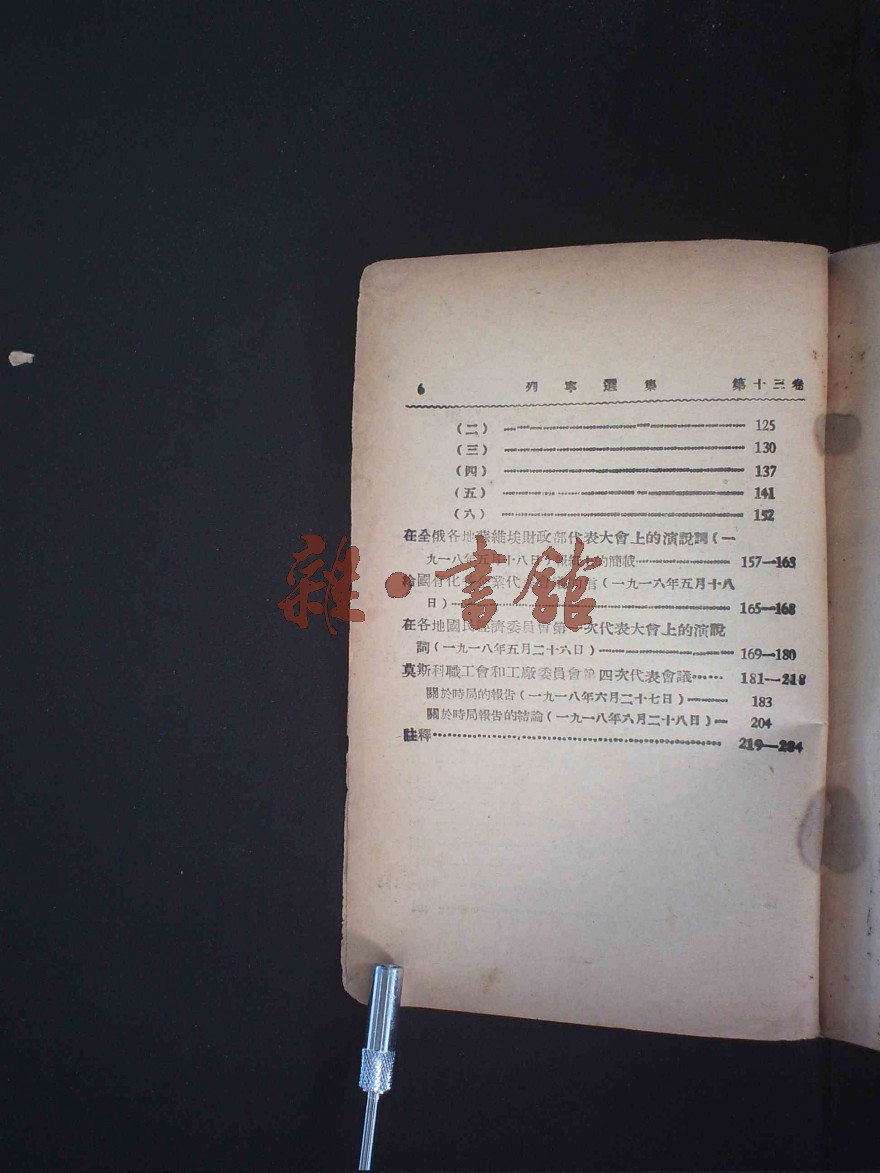 6 列寧選集 第十三卷
(二) 125
(三) 130
(四) 137
(五) 141
(六) 152
在全俄各地蘇維埃財政部代表大會上的演說詞(一
九一八年五月十八日 報紙上的簡載 157—163
給國有化 業代 信(一九一八年五月十八
日) 165—168
在各地國民經濟委員會第一次代表大會上的演說
詞(一九一八年五月二十六日) 169—180
莫斯科職工會和工廠委員會第四次代表會議…… 181—218
關於時局的報告(一九一八年六月二十七日) 183
關於時局報告的結論(一九一八年六月二十八日) 204
註釋 219—284
雜·書館